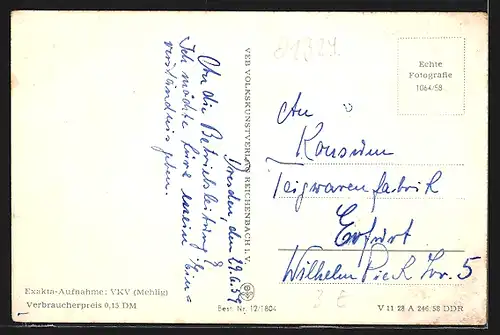 Dresden, den 29.6.59
An die Betriebsleitung!
Ich möchte Ihre
verständnis geben.
VEB VOLKSKUNSTVERLAG REICHENBACH I. V.
Echte
Fotografie
1064/58
An
Konsum
Teigwarenfabrik
Erfurt
Wilhelm Pieck Str. 5
Exakta-Aufnahme: VKV (Mehlig)
Verbraucherpreis 0,15 DM
Best. Nr. 12/1804
V 11 28 A 246/58 DDR